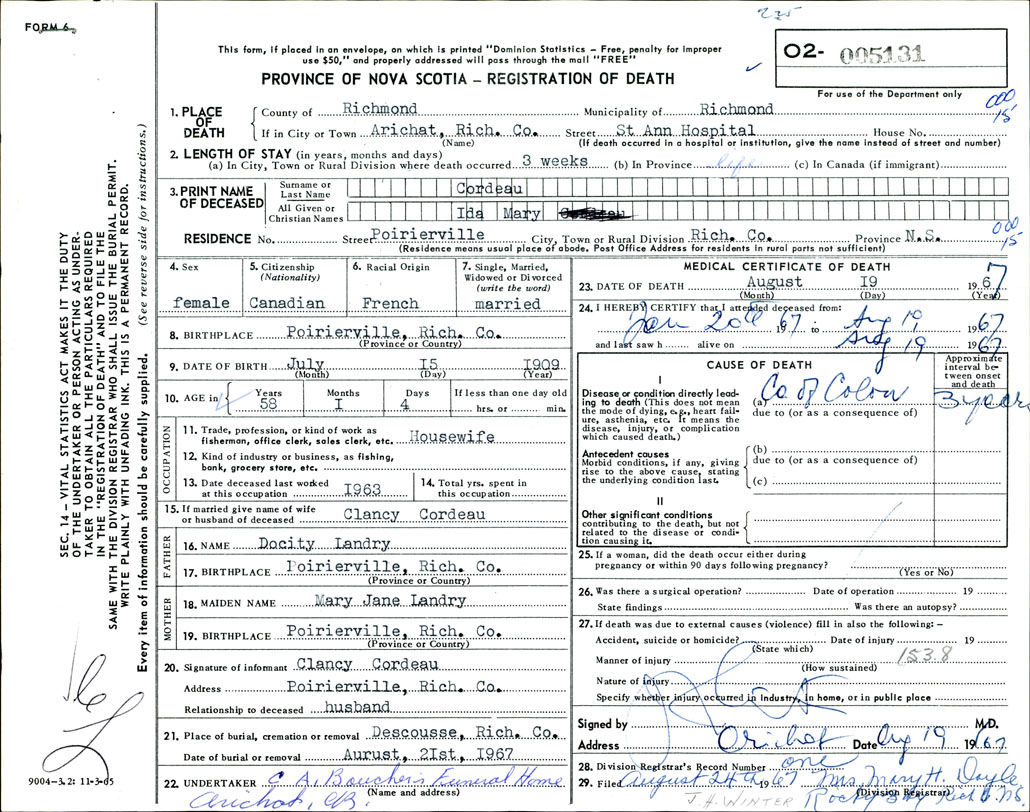 225
FORM 6
This form, if placed in an envelope, on which is printed "Dominion Statistics – Free, penalty for improper
use $50," and properly addressed will pass through the mail "FREE"
O2- 005131
PROVINCE OF NOVA SCOTIA – REGISTRATION OF DEATH
For use of the Department only
000
15
1. PLACE OF DEATH
County of Richmond Municipality of Richmond
If in City or Town Arichat, Rich. Co. Street St Ann Hospital House No.
(Name) (If death occurred in a hospital or institution, give the name instead of street and number)
2. LENGTH OF STAY (in years, months and days)
(a) In City, Town or Rural Division where death occurred 3 weeks (b) In Province life (c) In Canada (if immigrant)
3. PRINT NAME OF DECEASED
Surname or Last Name Cordeau
All Given or Christian Names Ida Mary
000
15
RESIDENCE No. Street Poirierville City, Town or Rural Division Rich. Co. Province N.S.
(Residence means usual place of abode. Post Office Address for residents in rural parts not sufficient)
4. Sex
female
5. Citizenship
(Nationality)
Canadian
6. Racial Origin
French
7. Single, Married,
Widowed or Divorced
(write the word)
married
8. BIRTHPLACE Poirierville, Rich. Co.
(Province or Country)
9. DATE OF BIRTH July I5 I909
(Month) (Day) (Year)
10. AGE in
Years Months Days If less than one day old
58 I 4 hrs. or min.
OCCUPATION
11. Trade, profession, or kind of work as
fisherman, office clerk, sales clerk, etc. Housewife
12. Kind of industry or business, as fishing,
bank, grocery store, etc.
13. Date deceased last worked
at this occupation I963
14. Total yrs. spent in
this occupation
15. If married give name of wife
or husband of deceased Clancy Cordeau
FATHER
16. NAME Docity Landry
17. BIRTHPLACE Poirierville, Rich. Co.
(Province or Country)
MOTHER
18. MAIDEN NAME Mary Jane Landry
19. BIRTHPLACE Poirierville, Rich. Co.
(Province or Country)
20. Signature of informant Clancy Cordeau
Address Poirierville, Rich. Co.
Relationship to deceased husband
21. Place of burial, cremation or removal Descousse, Rich. Co.
Date of burial or removal Aurust, 2Ist, I967
22. UNDERTAKER C A. Boucher's Funeral Home
(Name and address)
Arichat, CB.
MEDICAL CERTIFICATE OF DEATH
23. DATE OF DEATH August I9 1967
(Month) (Day) (Year)
24. I HEREBY CERTIFY that I attended deceased from:
Jan 20th 1967 to Aug 19, 1967
and last saw h alive on Aug 19 1967
CAUSE OF DEATH
Approximate
interval be-
tween onset
and death
I
Disease or condition directly lead-
ing to death (This does not mean
the mode of dying, e.g., heart fail-
ure, asthenia, etc. It means the
disease, injury, or complication
which caused death.)
(a) Ca of Colon 3 years
due to (or as a consequence of)
Antecedent causes
Morbid conditions, if any, giving
rise to the above cause, stating
the underlying condition last.
(b)
due to (or as a consequence of)
(c)
II
Other significant conditions
contributing to the death, but not
related to the disease or condi-
tion causing it.
25. If a woman, did the death occur either during
pregnancy or within 90 days following pregnancy?
(Yes or No)
26. Was there a surgical operation? Date of operation 19
State findings Was there an autopsy?
27. If death was due to external causes (violence) fill in also the following: –
Accident, suicide or homicide? Date of injury 19
(State which)
153.8
Manner of injury
(How sustained)
Nature of injury
Specify whether injury occurred in Industry, in home, or in public place
Signed by M.D.
Address Arichat Date Aug 19 1967
28. Division Registrar's Record Number one
29. Filed August 24th 1967 Mrs. Mary H. Doyle
(Division Registrar)
J. H. WINTER
Rich Co. N.S.
SEC. 14 – VITAL STATISTICS ACT MAKES IT THE DUTY
OF THE UNDERTAKER OR PERSON ACTING AS UNDER-
TAKER TO OBTAIN ALL THE PARTICULARS REQUIRED
IN THE "REGISTRATION OF DEATH" AND TO FILE THE
SAME WITH THE DIVISION REGISTRAR WHO SHALL ISSUE THE BURIAL PERMIT.
WRITE PLAINLY WITH UNFADING INK. THIS IS A PERMANENT RECORD.
Every item of information should be carefully supplied. (See reverse side for instructions.)
9004-3.2: 11-3-65